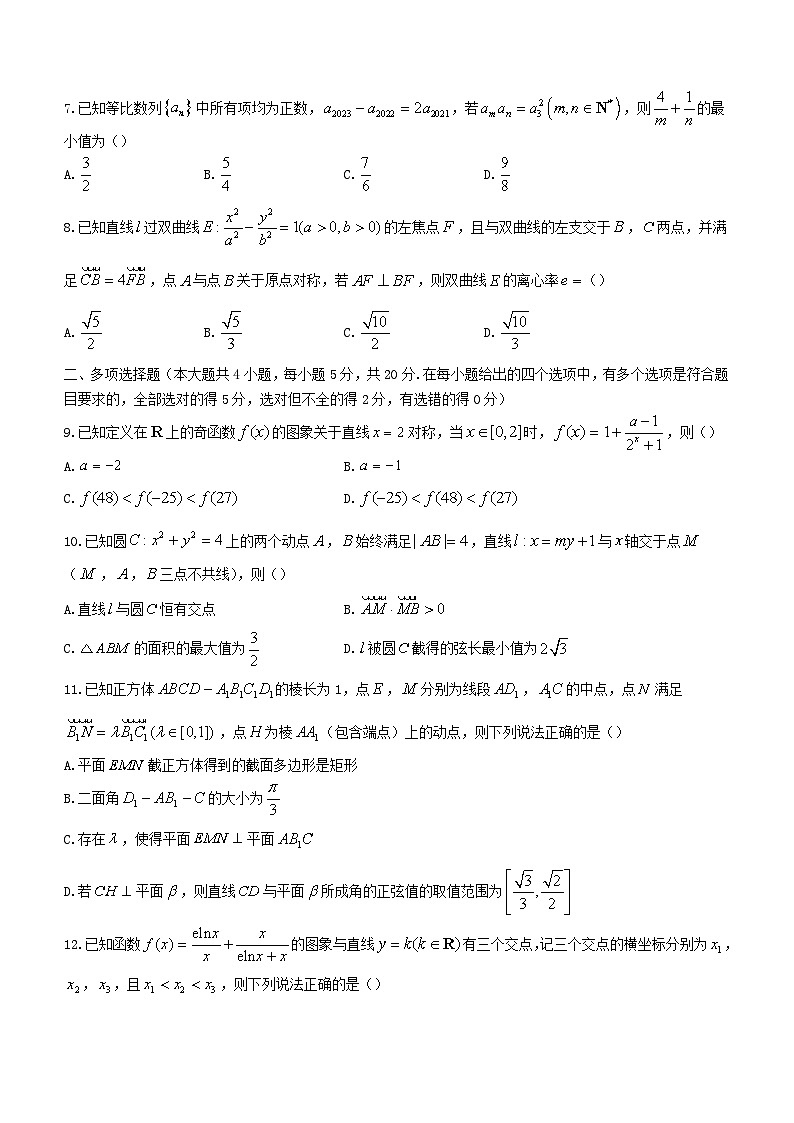 7.已知等比数列{aₙ}中所有项均为正数，a₂₀₂₃ − a₂₀₂₂ = 2a₂₀₂₁，若aₘaₙ = a₃²(m,n∈N*)，则4/m + 1/n的最
小值为()
A. 3/2 B. 5/4 C. 7/6 D. 9/8
8.已知直线l过双曲线E: x²/a² − y²/b² = 1(a > 0, b > 0)的左焦点F，且与双曲线的左支交于B，C两点，并满
足CB = 4FB，点A与点B关于原点对称，若AF ⊥ BF，则双曲线E的离心率e = ()
A. √5/2 B. √5/3 C. √10/2 D. √10/3
二、多项选择题(本大题共4小题，每小题5分，共20分.在每小题给出的四个选项中，有多个选项是符合题
目要求的，全部选对的得5分，选对但不全的得2分，有选错的得0分)
9.已知定义在R上的奇函数f(x)的图象关于直线x = 2对称，当x∈[0,2]时，f(x) = 1 + (a−1)/(2ˣ+1)，则()
A. a = −2 B. a = −1
C. f(48) < f(−25) < f(27) D. f(−25) < f(48) < f(27)
10.已知圆C: x² + y² = 4上的两个动点A，B始终满足|AB|= 4，直线l: x = my + 1与x轴交于点M
(M，A，B三点不共线)，则()
A.直线l与圆C恒有交点 B. AM · MB > 0
C. △ABM的面积的最大值为3/2 D. l被圆C截得的弦长最小值为2√3
11.已知正方体ABCD − A₁B₁C₁D₁的棱长为1，点E，M分别为线段AD₁，A₁C的中点，点N满足
B₁N = λB₁C₁(λ∈[0,1])，点H为棱AA₁(包含端点)上的动点，则下列说法正确的是()
A.平面EMN截正方体得到的截面多边形是矩形
B.二面角D₁ − AB₁ − C的大小为π/3
C.存在λ，使得平面EMN ⊥ 平面AB₁C
D.若CH ⊥ 平面β，则直线CD与平面β所成角的正弦值的取值范围为[√3/3, √2/2]
12.已知函数f(x) = elnx/x + x/(elnx + x)的图象与直线y = k(k∈R)有三个交点，记三个交点的横坐标分别为x₁，
x₂，x₃，且x₁ < x₂ < x₃，则下列说法正确的是()